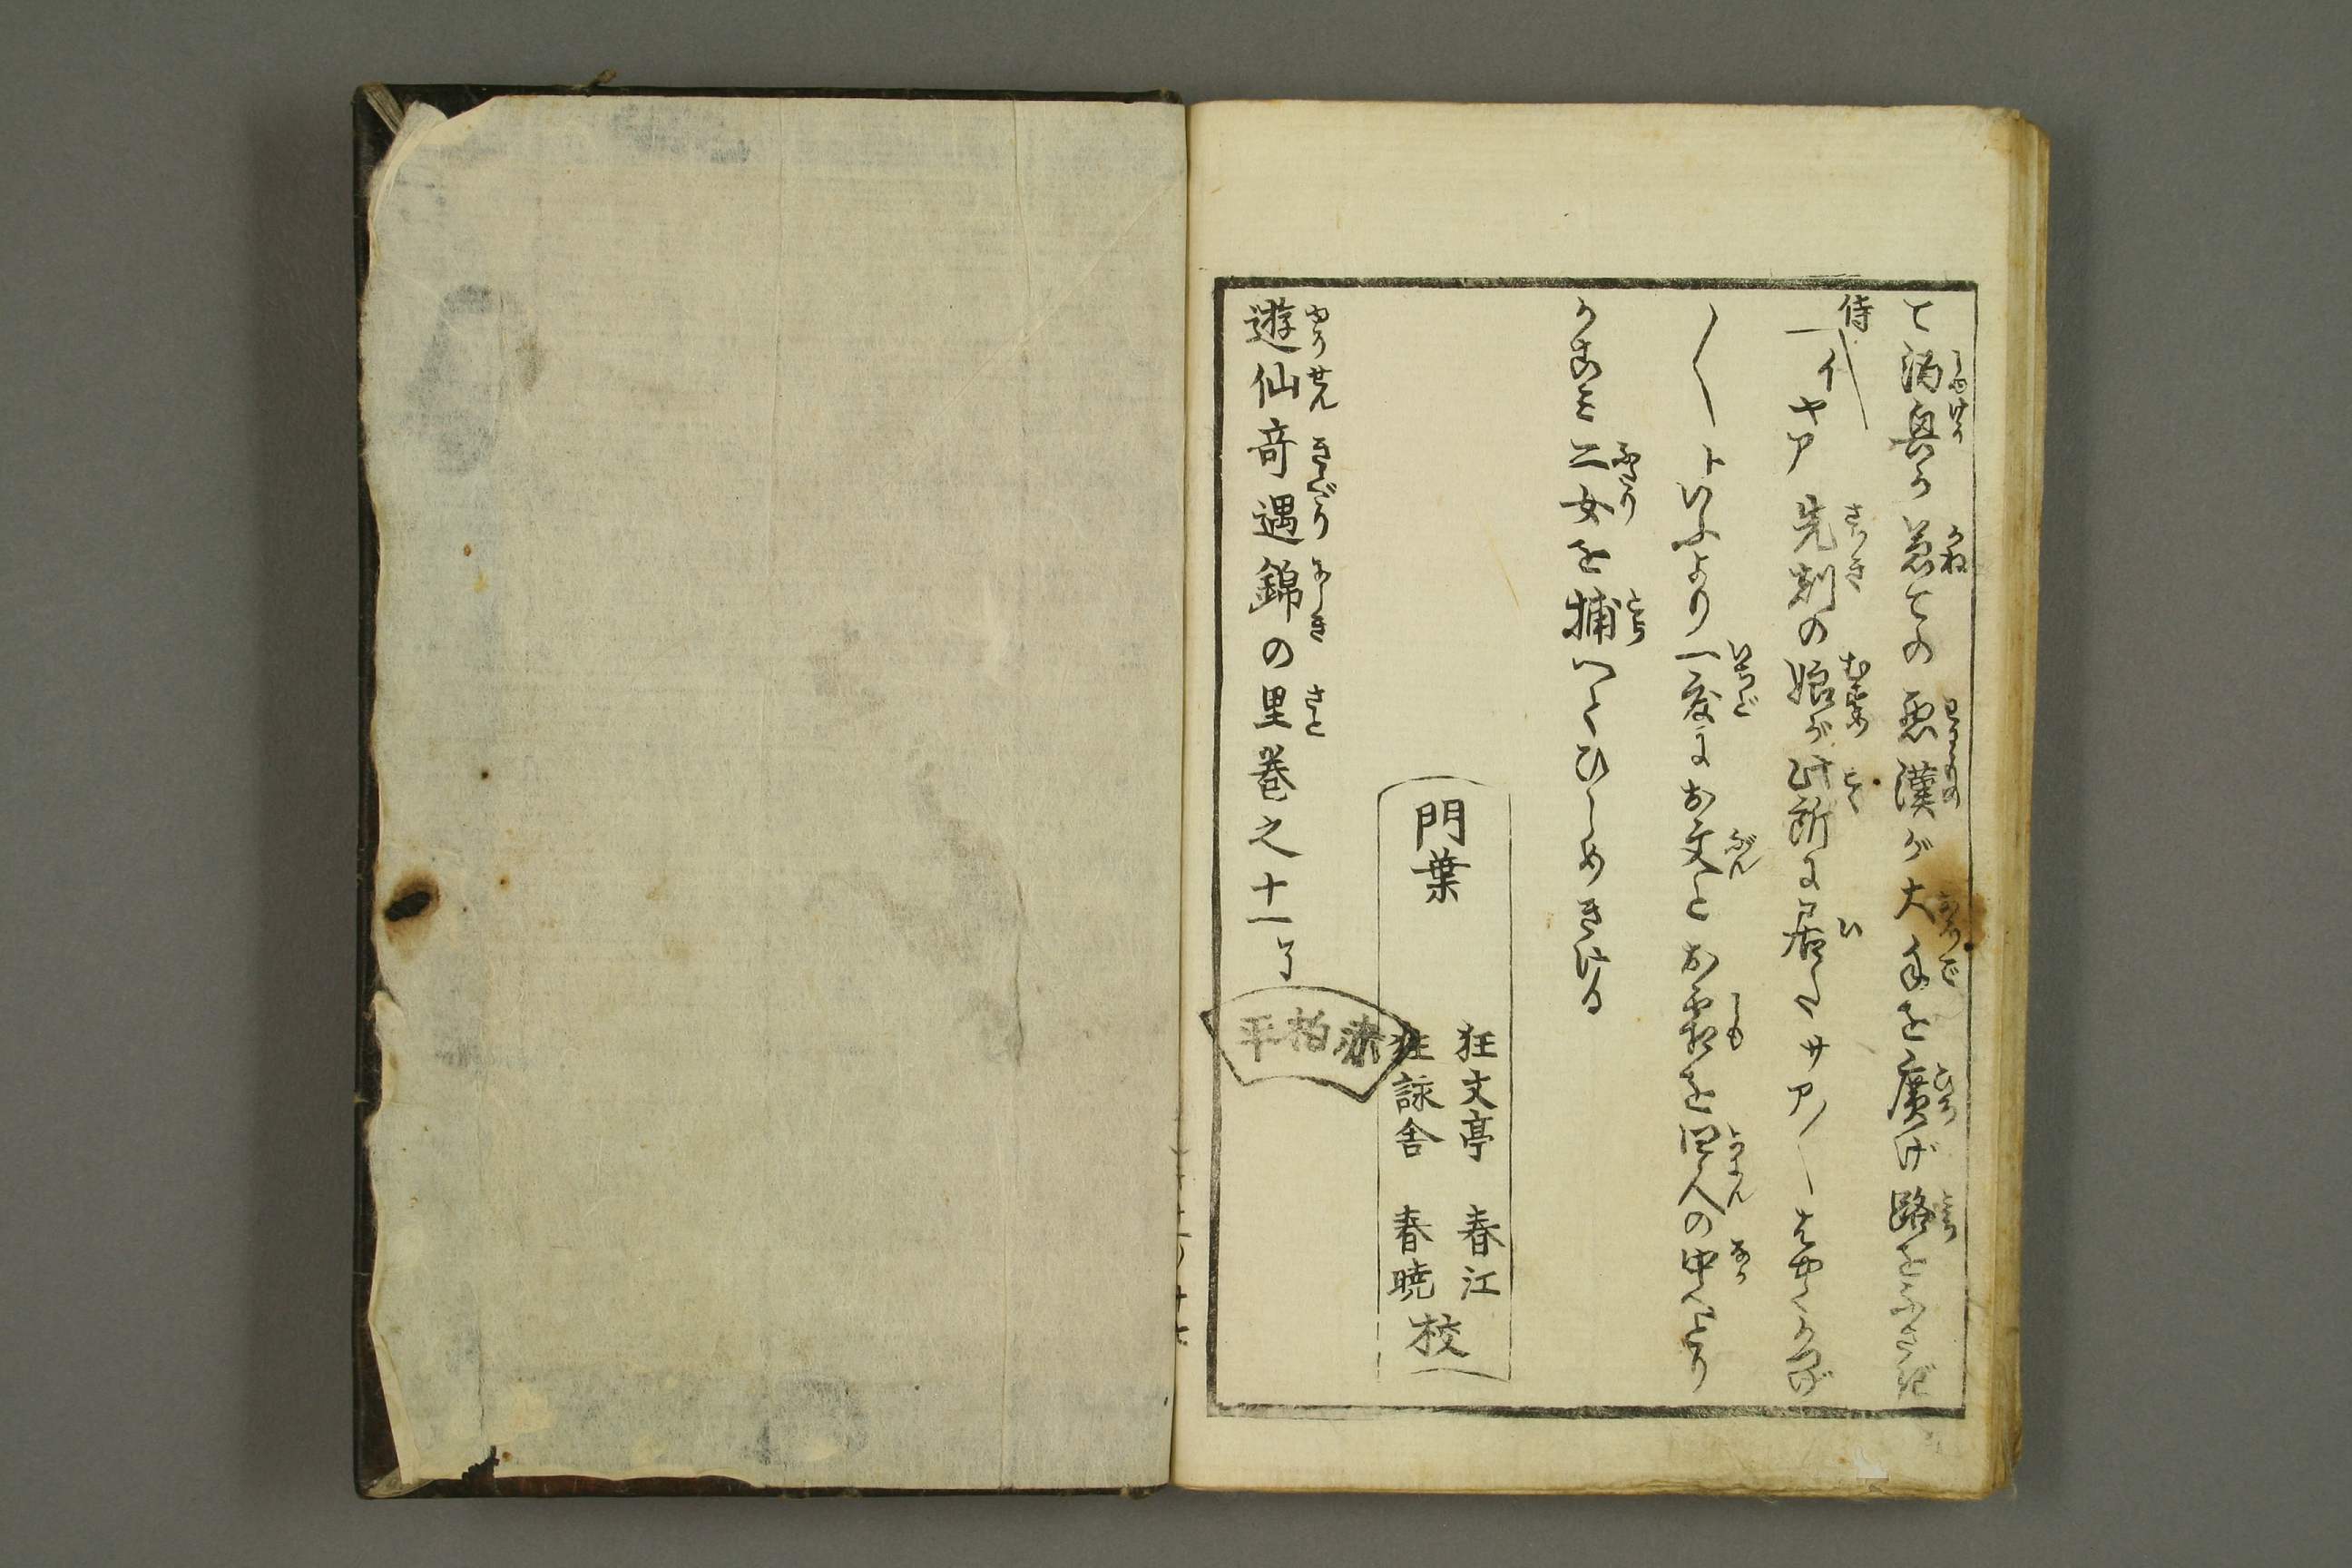 て酒興か兼ての悪漢が大手を廣げ路をふさぎ
侍「イヤア先刻の娘が此所に居たサア〳〵はやくつげ
〳〵トいふより一度にお文とお霜を四人の中へとり
かこみ二女を捕へてひしめきける
門葉
狂文亭 春江
狂詠舎 春暁
校
遊仙奇遇錦の里巻之十一了
赤柏平